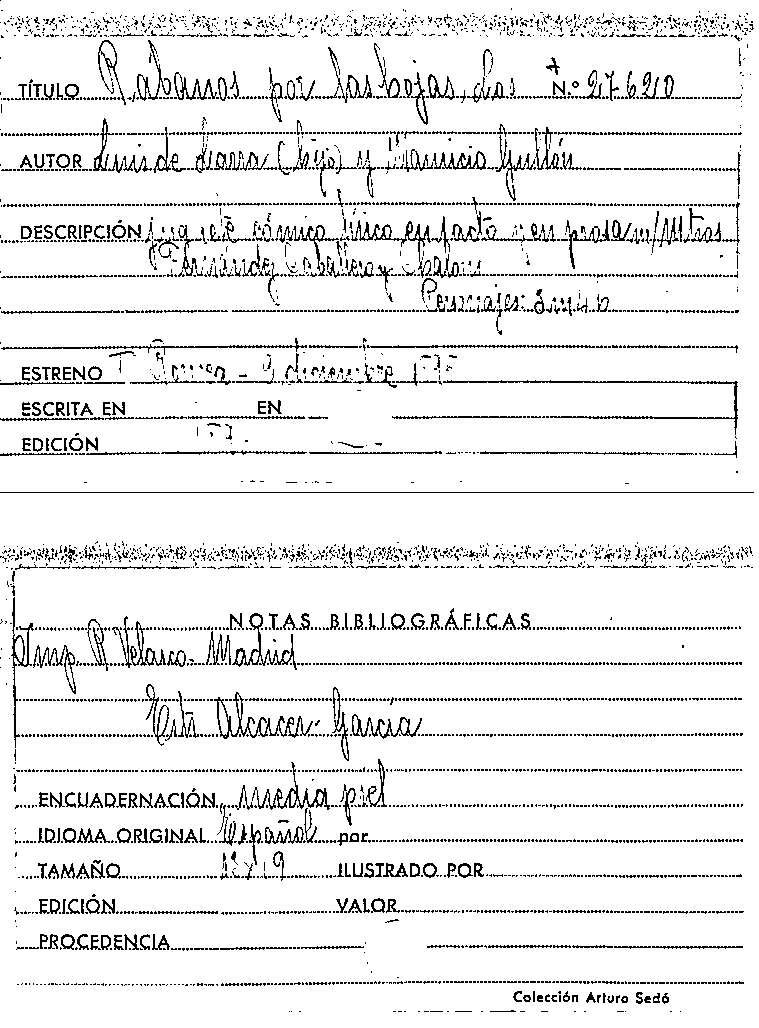 TÍTULO Rábanos por las hojas, Los N.º 27620
AUTOR Luis de Larra (hijo) y Mauricio Gullón
DESCRIPCIÓN Juguete cómico lírico en 1 acto y en prosa m/ Mtros
Fernández Caballero y Chalons
Personajes: 3 m 4 h
ESTRENO T. - 9 diciembre
ESCRITA EN EN
EDICIÓN
NOTAS BIBLIOGRÁFICAS
Imp. R. Velasco. Madrid
Alcacer-García
ENCUADERNACIÓN media piel
IDIOMA ORIGINAL Español por
TAMAÑO ILUSTRADO POR
EDICIÓN VALOR
PROCEDENCIA
Colección Arturo Sedó